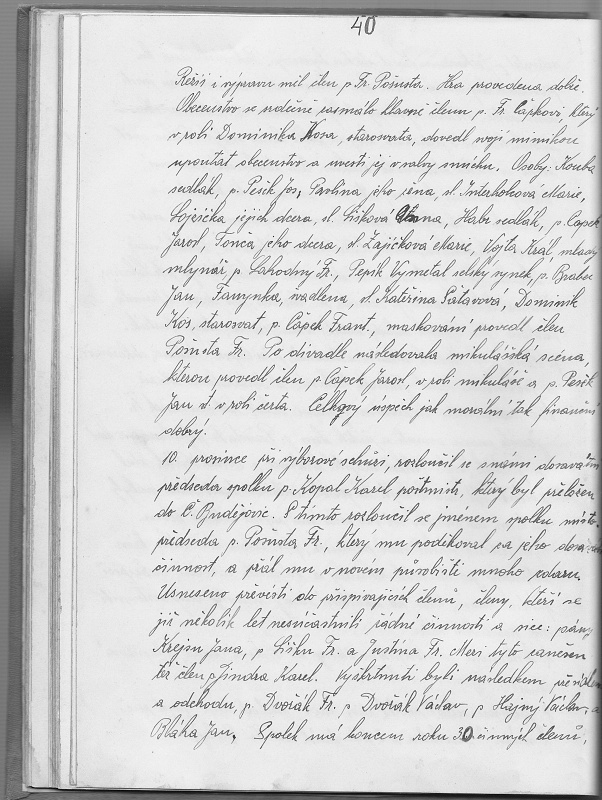 40
Režii i výpravu měl člen p. Fr. Pošusta. Hra provedena dobře.
Obecenstvo se srdečně zasmálo hlavně členu p. Fr. Čápkovi, který
v roli Dominika Kosa, starosvata, dovedl svojí mimikou
upoutat obecenstvo a uvésti jej v salvy smíchu. Osoby: Kouba
sedlák, p. Pešík Jos, Pavlína jeho žena, sl. Interholcová Marie,
jejich dcera, sl. Lišková Anna, Habr sedlák, p. Čápek
Jarosl, Tonča jeho dcera, sl. Zajíčková Marie, Vojta Král, mladý
mlynář, p. Lahodný Fr., Pepík Vymetal selský synek, p. Brabec
Jan, Fanynka, švadlena, sl. Kateřina Šatavová, Dominik
Kos, starosvat, p. Čápek Frant., maskování provedl člen
Pošusta Fr. Po divadle následovala mikulášská scéna,
kterou provedl člen p. Čápek Jarosl, v roli mikuláše a p. Pešík
Jan st v roli čerta. Celkový úspěch jak morální tak finanční
dobrý.
10. prosince při výborové schůzi, rozloučil se s námi dosavadní
předseda spolku p. Kopal Karel poštmistr, který byl přeložen
do Č. Budějovic. S tímto rozloučil se jménem spolku místo-
předseda p. Pošusta Fr., který mu poděkoval za jeho dosavadní
činnost, a přál mu v novém působišti mnoho zdaru.
Usneseno převésti do přispívajících členů, členy, kteří se
již několik let nesúčastnili řádné činnosti a sice: pány
Krejsu Jana, p Lišku Fr. a Justina Fr. Mezi tyto zanešen
též člen p. Jindra Karel. Vyškrtnuti byli následkem přesídlení
a odchodu, p. Dvořák Fr. p Dvořák Václav, p Hajný Václav, a
Bláha Jan. Spolek má koncem roku 30 činných členů,